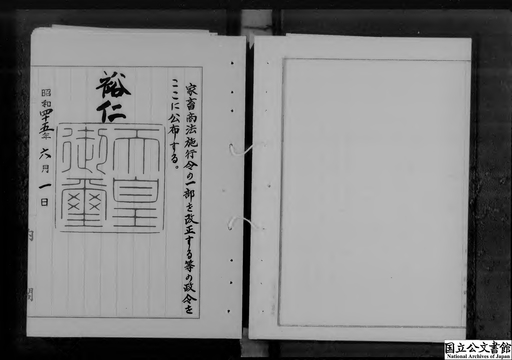 家畜商法施行令の一部を改正する等の政令を
ここに公布する。
裕仁
天皇
御璽
昭和四十五年六月一日
内
閣
国立公文書館
National Archives of Japan